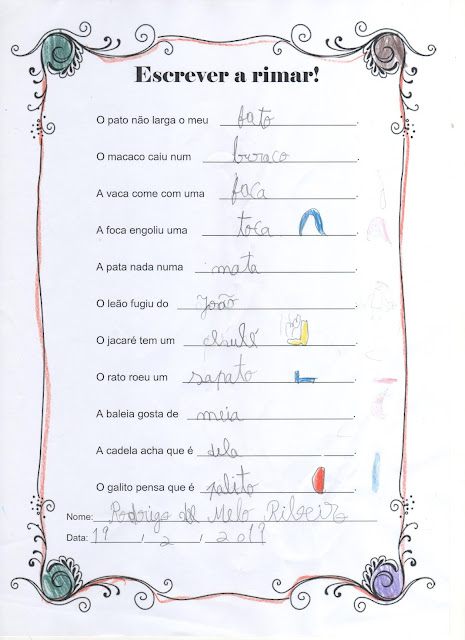 Escrever a rimar!
O pato não larga o meu fato.
O macaco caiu num buraco.
A vaca come com uma faca.
A foca engoliu uma toca.
A pata nada numa mata.
O leão fugiu do João.
O jacaré tem um chulé.
O rato roeu um sapato.
A baleia gosta de meia.
A cadela acha que é dela.
O galito pensa que é palito.
Nome: Rodrigo de Melo Ribeiro
Data: 19 / 2 / 2019